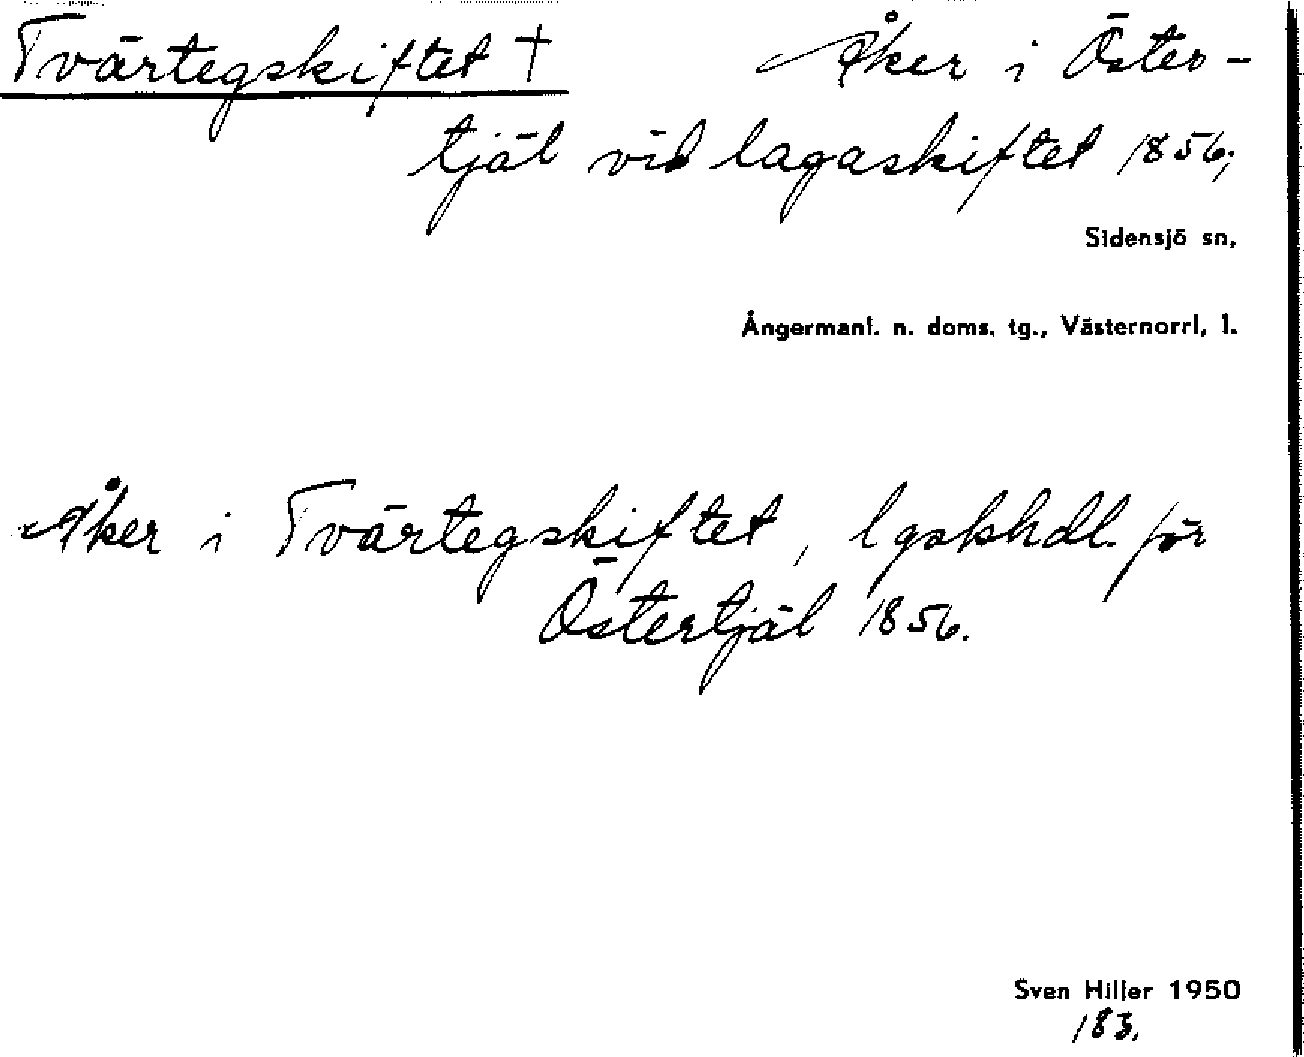 Tvärtegskiftet † Åker i Öster-
tjäl vid lagaskiftet 1856;
Sidensjö sn,
Ångermanl. n. doms. tg., Västernorrl. l.
Åker i Tvärtegskiftet, lgskhdl. för
Östertjäl 1856.
Sven Hiller 1950
183.